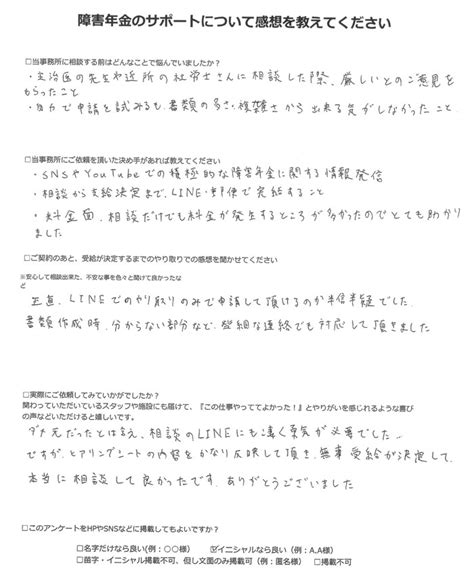 障害年金のサポートについて感想を教えてください
□当事務所に相談する前はどんなことで悩んでいましたか？
・主治医の先生や近所の社労士さんに相談した際、厳しいとのご意見を
もらったこと
・自力で申請を試みるも、書類の多さ・複雑さから出来る気がしなかったこと.
□当事務所にご依頼を頂いた決め手があれば教えてください
・SNSやYouTubeでの積極的な障害年金に関する情報発信
・相談から支給決定まで、LINE・郵便で完結すること
・料金面.相談だけでも料金が発生するところが多かったのでとても助かり
ました
□ご契約のあと、受給が決定するまでのやり取りでの感想を聞かせてください
※安心して相談出来た、不安な事を色々と聞けて良かったな
ど
正直、LINEでのやり取りのみで申請して頂けるのか半信半疑でした.
書類作成時、分からない部分など、些細な連絡でも対応して頂きました
□実際にご依頼してみていかがでしたか？
関わっていただいているスタッフや施設にも届けて、『この仕事やっててよかった！』とやりがいを感じれるような喜び
の声などいただけると嬉しいです。
ダメ元だったとは言え、相談のLINEにも凄く勇気が必要でした…
ですが、ヒアリングシートの内容をかなり反映して頂き、無事受給が決定して、
本当に相談して良かったです. ありがとうございました
□このアンケートをHPやSNSなどに掲載してもよいですか？
□名字だけなら良い(例：〇〇様) ☑イニシャルなら良い（例：A.A様）
□苗字・イニシャル掲載不可、但し文面のみ掲載可(例：匿名様) □掲載不可